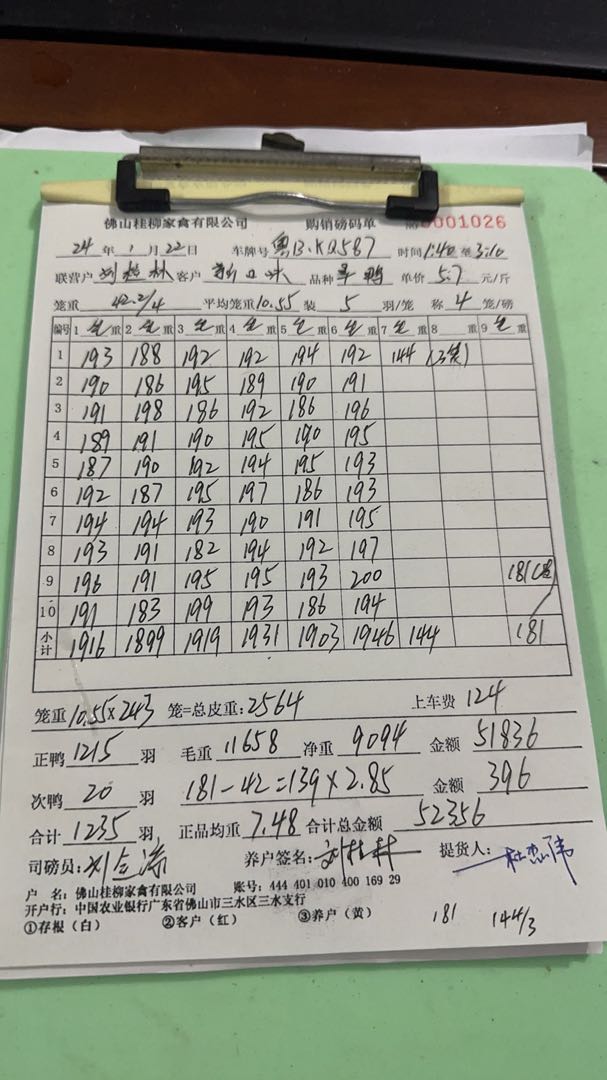 佛山桂柳家禽有限公司 购销磅码单 0001026
24 年 1 月 22 日 车牌号 粤B·KQ587 时间 1:40 至 3:10
联营户 刘桂林 客户 品种 鸭 单价 5.7 元/斤
笼重 42.2/4 平均笼重 10.55 装 5 羽/笼 称 4 笼/磅
编号 1 毛 重 2 毛 重 3 毛 重 4 毛 重 5 毛 重 6 毛 重 7 毛 重 8 重 9 毛 重
1 193 188 192 192 194 192 144 (3笼)
2 190 186 195 189 190 191
3 191 198 186 192 186 196
4 189 191 190 195 190 195
5 187 190 192 194 195 193
6 192 187 195 197 186 193
7 194 194 193 190 191 195
8 193 191 182 194 192 197
9 196 191 195 195 193 200 181
10 191 183 199 193 186 194
小计 1916 1899 1919 1931 1903 1946 144 181
笼重 10.55×243 笼=总皮重: 2564 上车费 124
正鸭 1215 羽 毛重 11658 净重 9094 金额 51836
次鸭 20 羽 181-42=139×2.85 金额 396
合计 1235 羽 正品均重 7.48 合计总金额 52356
司磅员: 养户签名: 提货人:
户 名: 佛山桂柳家禽有限公司 账号: 444 401 010 400 169 29
开户行: 中国农业银行广东省佛山市三水区三水支行
①存根(白) ②客户(红) ③养户(黄) 181 144/3